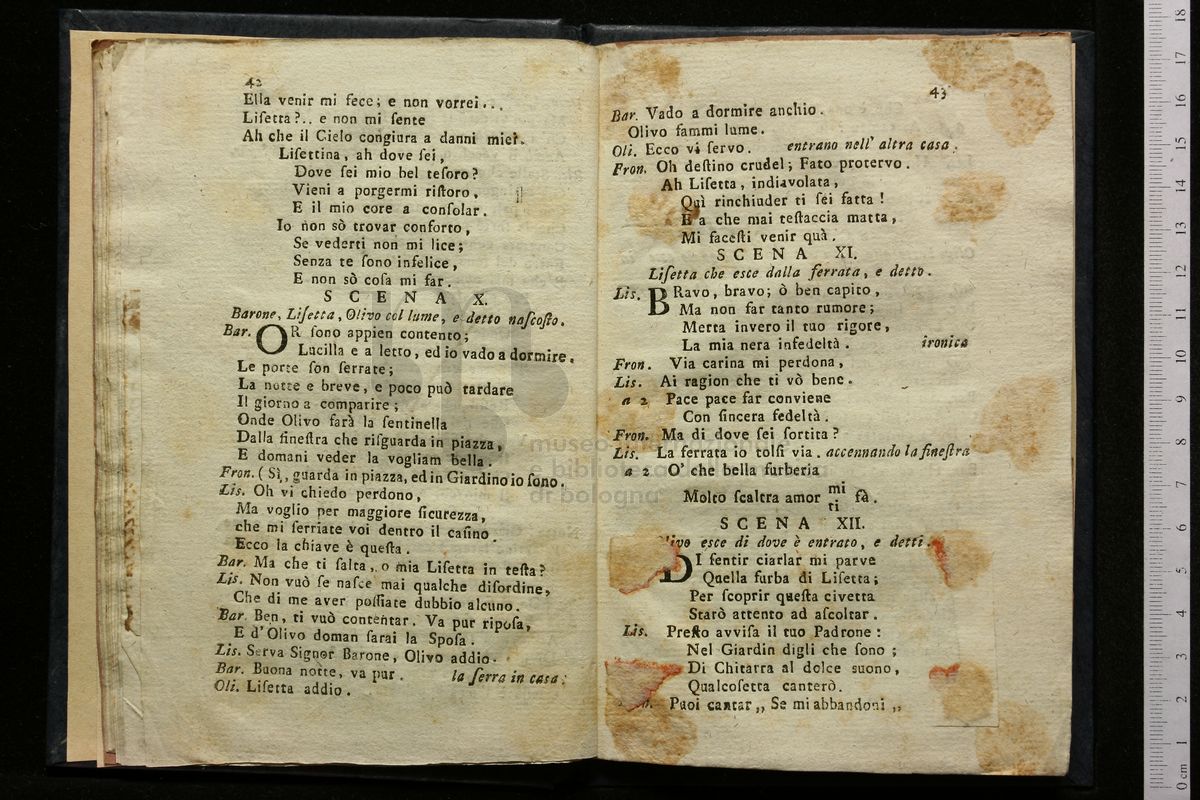 42
Ella venir mi fece; e non vorrei...
Liſetta?.. e non mi ſente
Ah che il Cielo congiura a danni miei.
Liſettina, ah dove ſei,
Dove ſei mio bel teſoro?
Vieni a porgermi riſtoro,
E il mio core a conſolar.
Io non sò trovar conforto,
Se vederti non mi lice;
Senza te ſono infelice,
E non sò coſa mi far.
SCENA X.
Barone, Liſetta, Olivo col lume, e detto naſcoſto.
Bar. OR ſono appien contento;
Lucilla e a letto, ed io vado a dormire.
Le porte ſon ſerrate;
La notte e breve, e poco può tardare
Il giorno a comparire;
Onde Olivo farà la ſentinella
Dalla fineſtra che riſguarda in piazza,
E domani veder la vogliam bella.
Fron. (Sì, guarda in piazza, ed in Giardino io ſono.
Lis. Oh vi chiedo perdono,
Ma voglio per maggiore ſicurezza,
che mi ſerriate voi dentro il caſino.
Ecco la chiave è queſta.
Bar. Ma che ti ſalta, o mia Liſetta in teſta?
Lis. Non vuò ſe naſce mai qualche diſordine,
Che di me aver poſſiate dubbio alcuno.
Bar. Ben, ti vuò contentar. Va pur ripoſa,
E d'Olivo doman ſarai la Spoſa.
Lis. Serva Signor Barone, Olivo addio.
Bar. Buona notte, va pur. la ſerra in casa.
Oli. Liſetta addio.
43
Bar. Vado a dormire anchio.
Olivo fammi lume.
Oli. Ecco vi ſervo. entrano nell' altra casa.
Fron. Oh deſtino crudel; Fato protervo.
Ah Liſetta, indiavolata,
Quì rinchiuder ti ſei fatta!
E a che mai teſtaccia matta,
Mi faceſti venir quà.
SCENA XI.
Liſetta che esce dalla ferrata, e detto.
Lis. BRavo, bravo; ò ben capito,
Ma non far tanto rumore;
Merta invero il tuo rigore,
La mia nera infedeltà. ironica
Fron. Via carina mi perdona,
Lis. Ai ragion che ti vò bene.
a 2 Pace pace far conviene
Con ſincera fedeltà.
Fron. Ma di dove ſei ſortita?
Lis. La ferrata io tolſi via. accennando la fineſtra
a 2 O' che bella furberia
Molto ſcaltra amor mi fà.
ti
SCENA XII.
Olivo esce di dove è entrato, e detti.
DI ſentir ciarlar mi parve
Quella furba di Liſetta;
Per ſcoprir queſta civetta
Starò attento ad aſcoltar.
Lis. Preſto avviſa il tuo Padrone:
Nel Giardin digli che ſono;
Di Chitarra al dolce suono,
Qualcoſetta canterò.
Puoi cantar „ Se mi abbandoni „
museo internazionale
e biblioteca
di bologna
0 cm 1 2 3 4 5 6 7 8 9 10 11 12 13 14 15 16 17 18